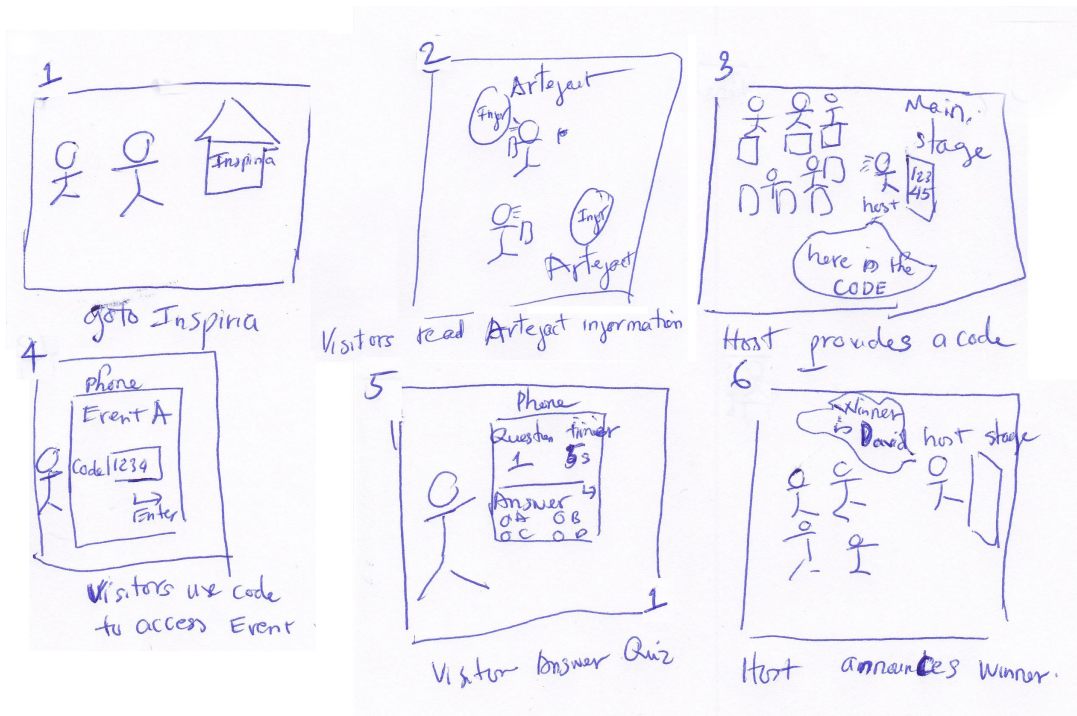 1
Inspiria
goto Inspiria
2
Artefact
Infor
Infor
Artefact
Visitors read Artefact information
3
Main
stage
123
45
host
here is the
CODE
Host provides a code
4
Phone
Event A
Code 1234
Enter
Visitors use code
to access Event
5
Phone
Question timer
1 5s
Answer
A B
C D
1
Visitor Answer Quiz
6
Winner
is David
host stage
Host announces winner.